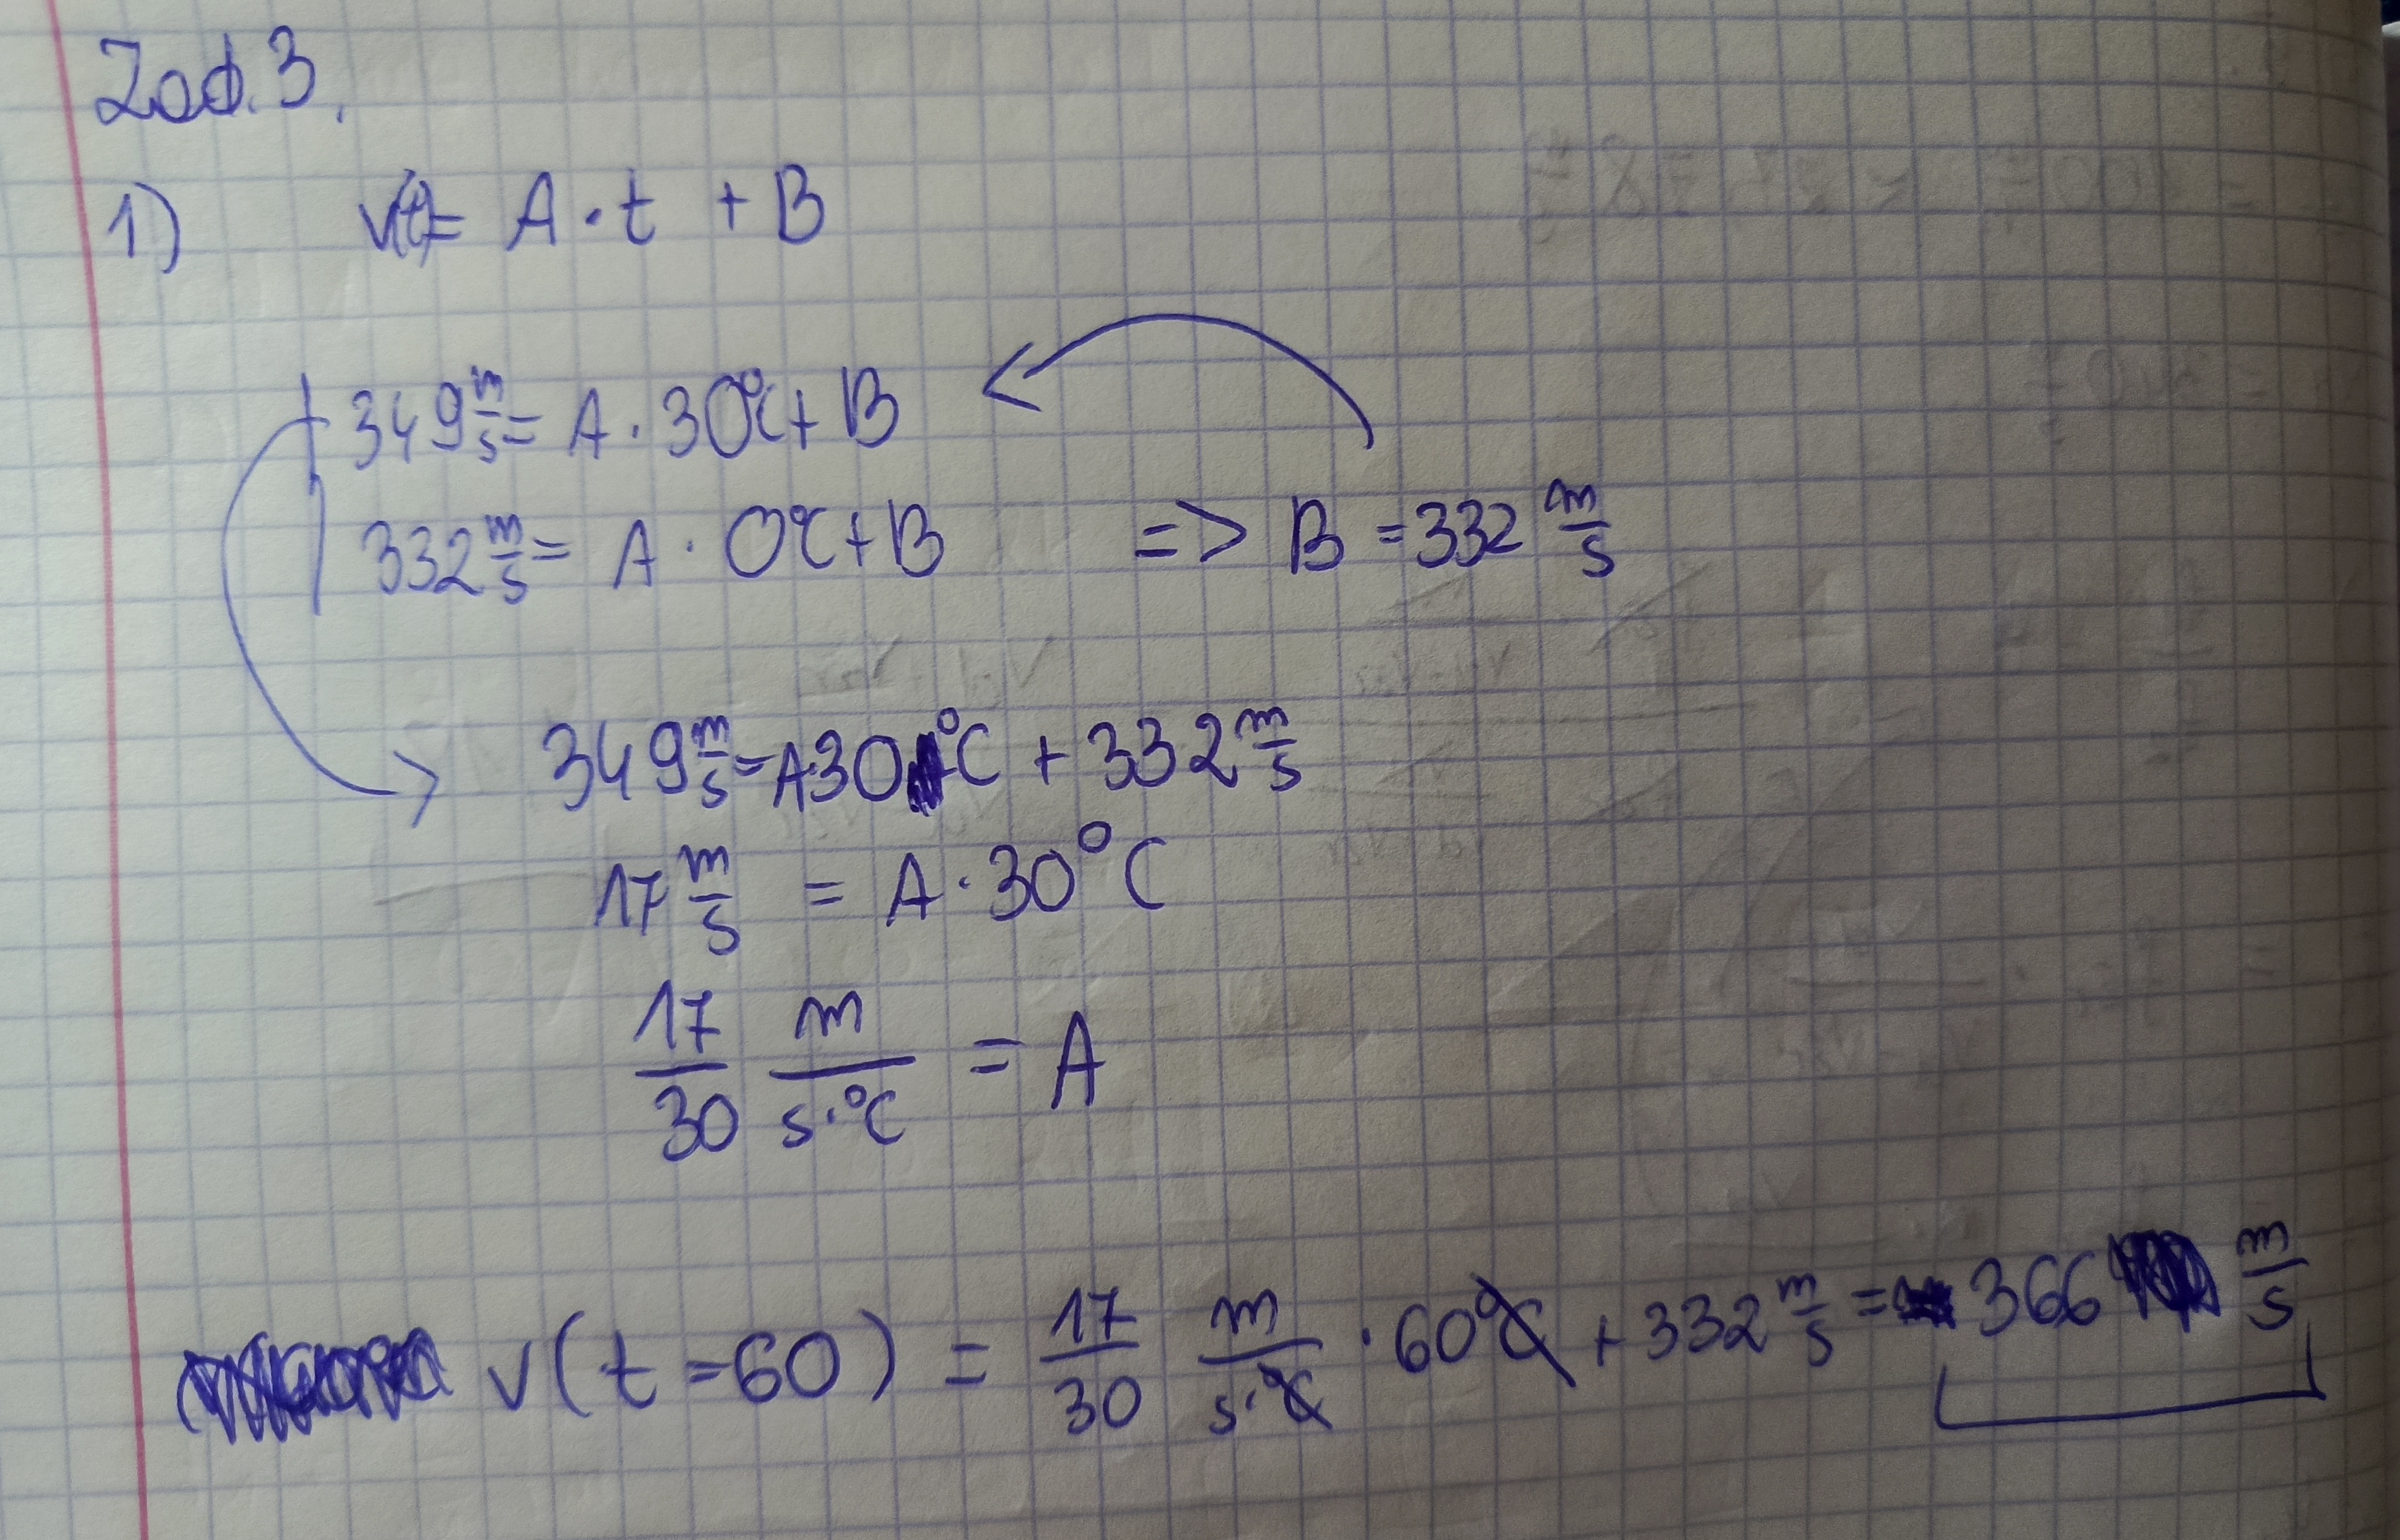 Zad. 3.
1) v(t)= A·t + B
349 m/s = A·30°C + B
332 m/s = A·0°C + B => B = 332 m/s
349 m/s = A·30°C + 332 m/s
17 m/s = A·30°C
17/30 m/(s·°C) = A
v(t=60) = 17/30 m/(s·°C) · 60°C + 332 m/s = 366 m/s